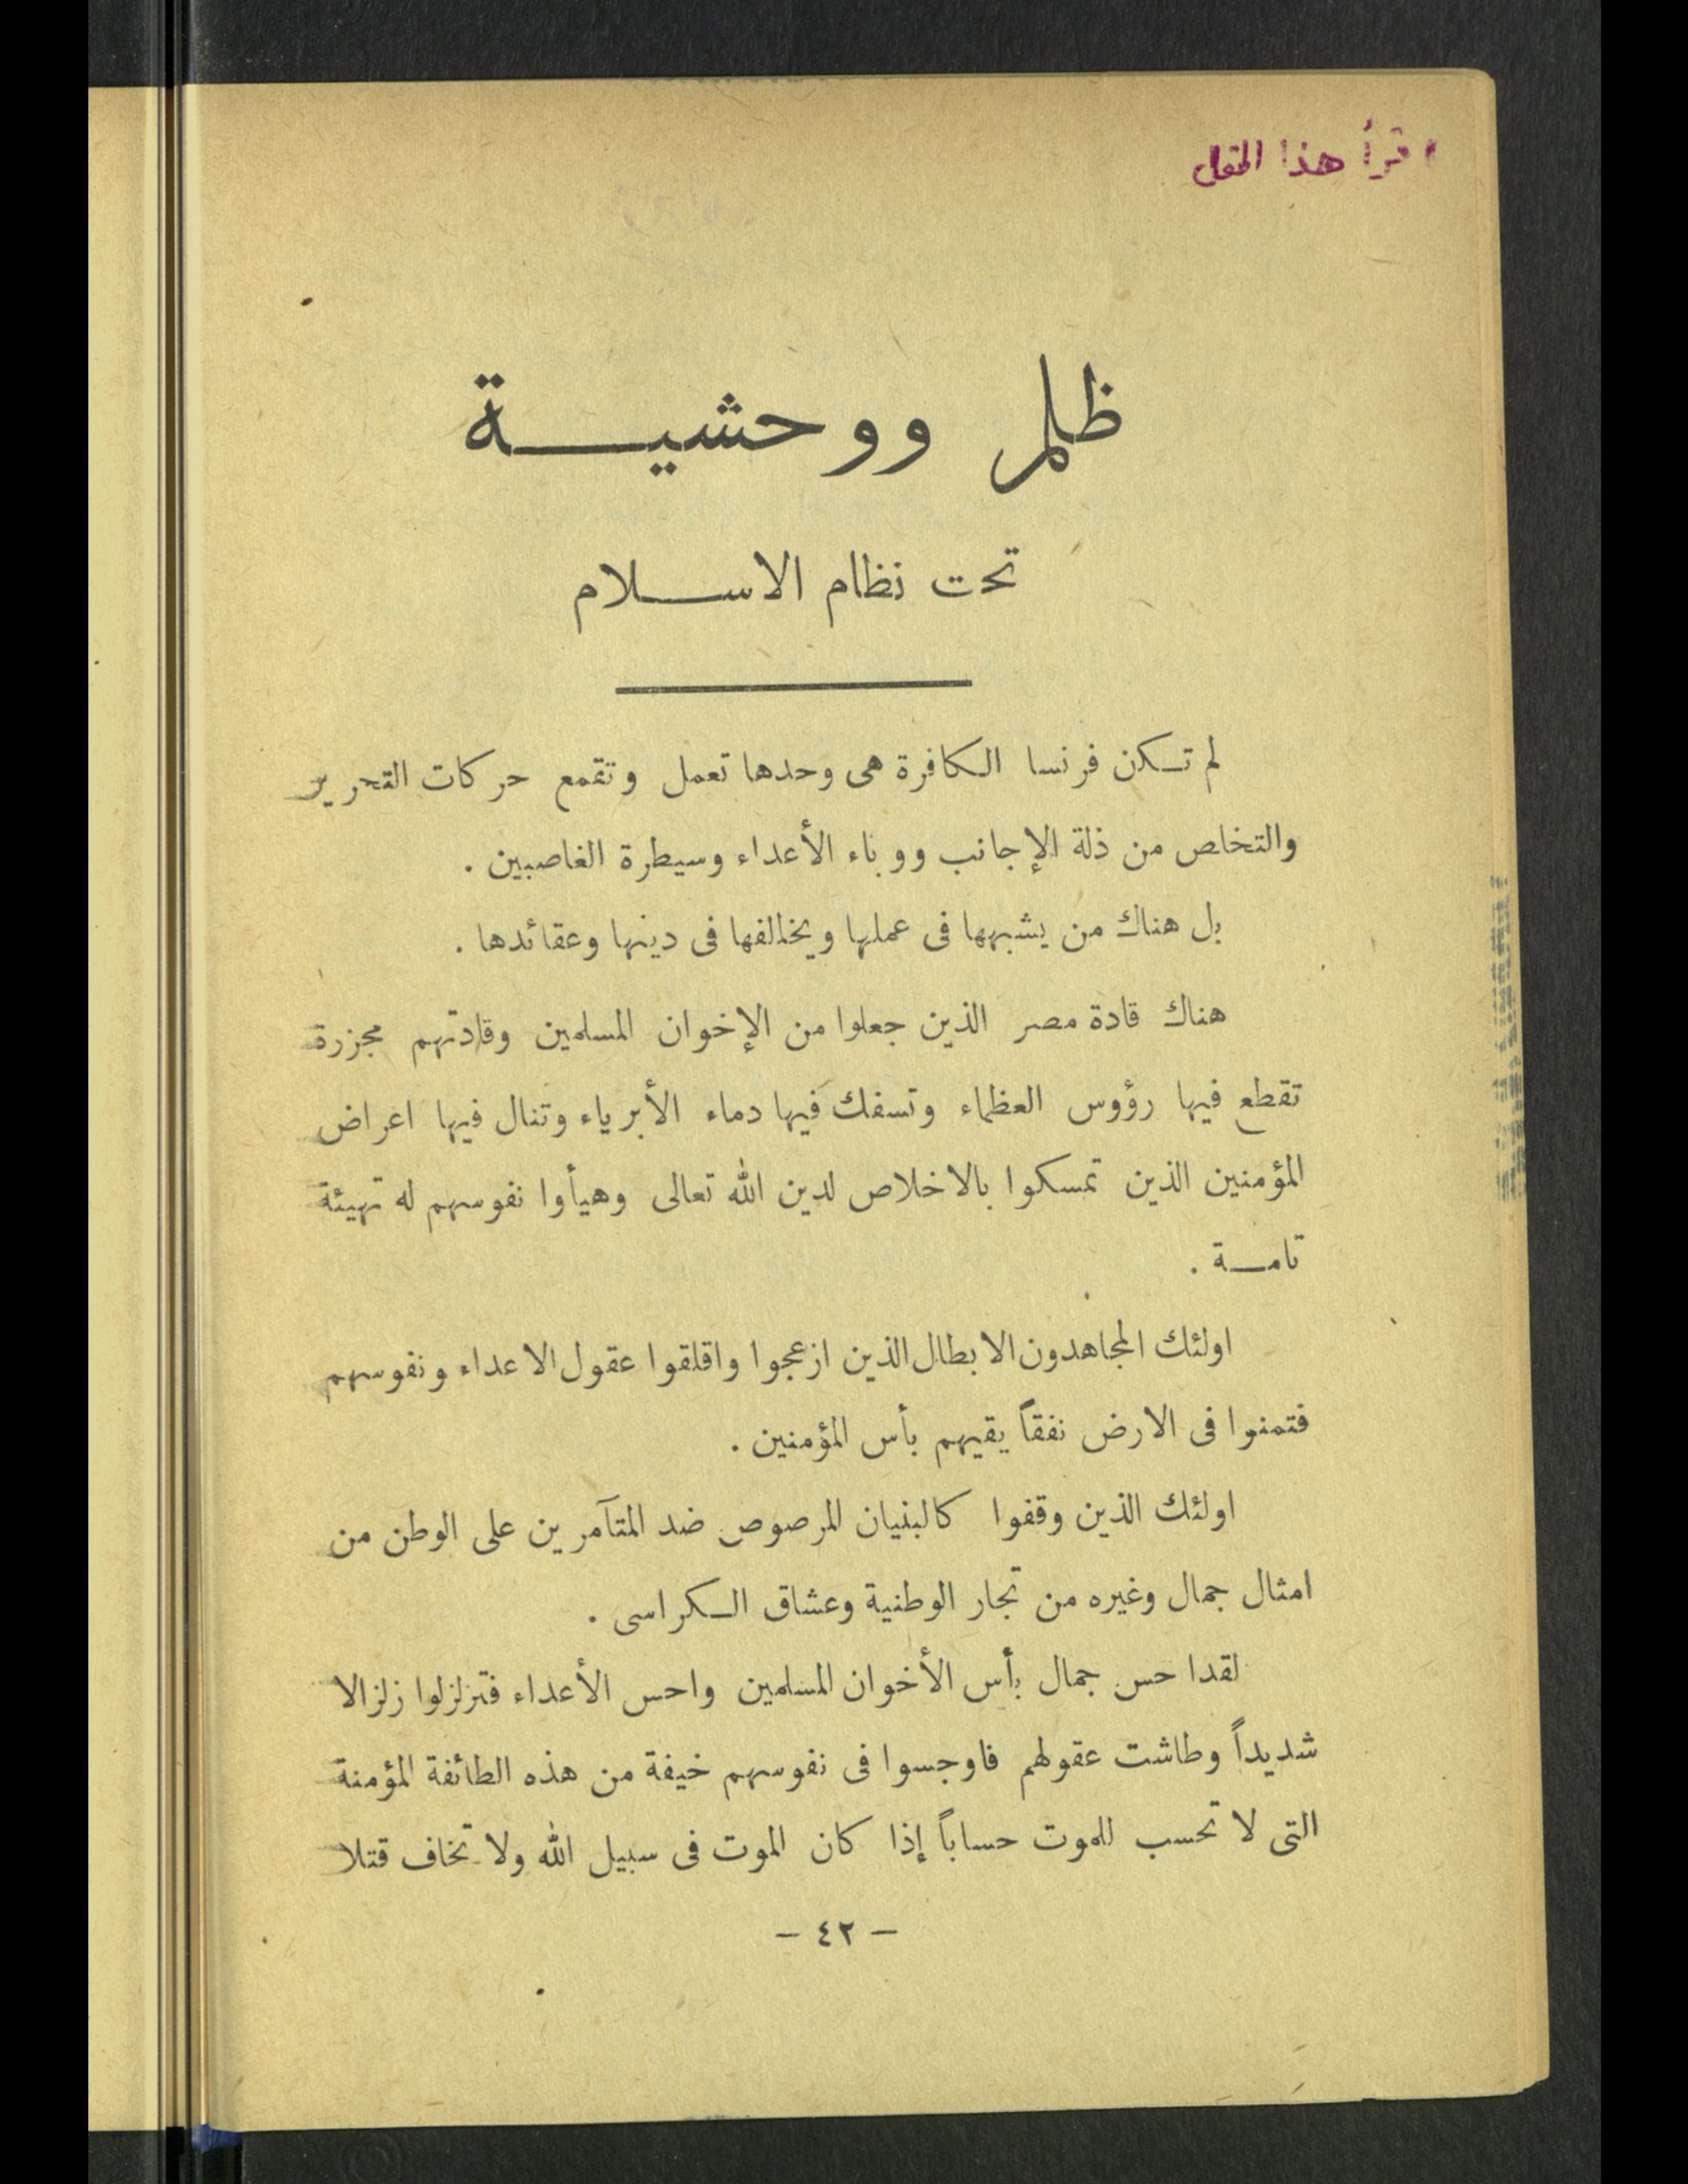 اقرأ هذا المقل
ظلم ووحشية
تحت نظام الاسلام
لم تكن فرنسا الكافرة هى وحدها تعمل وتقمع حركات التحرير
والتخلص من ذلة الإجانب ووباء الأعداء وسيطرة الغاصبين .
بل هناك من يشبهها فى عملها ويخالفها فى دينها وعقائدها .
هناك قادة مصر الذين جعلوا من الإخوان المسلمين وقادتهم مجزرة
تقطع فيها رؤوس العظماء وتسفك فيها دماء الأبرياء وتنال فيها اعراض
المؤمنين الذين تمسكوا بالاخلاص لدين الله تعالى وهيأوا نفوسهم له تهيئة
تامة .
اولئك المجاهدون الابطال الذين ازعجوا واقلقوا عقول الاعداء ونفوسهم
فتمنوا فى الارض نفقاً يقيهم بأس المؤمنين .
اولئك الذين وقفوا كالبنيان المرصوص ضد المتآمرين على الوطن من
امثال جمال وغيره من تجار الوطنية وعشاق الكراسى .
لقدا حس جمال بأس الأخوان المسلمين واحس الأعداء فتزلزلوا زلزالا
شديداً وطاشت عقولهم فاوجسوا فى نفوسهم خيفة من هذه الطائفة المؤمنة
التى لا تحسب للموت حساباً إذا كان الموت فى سبيل الله ولا تخاف قتلا
– ٤٢ –